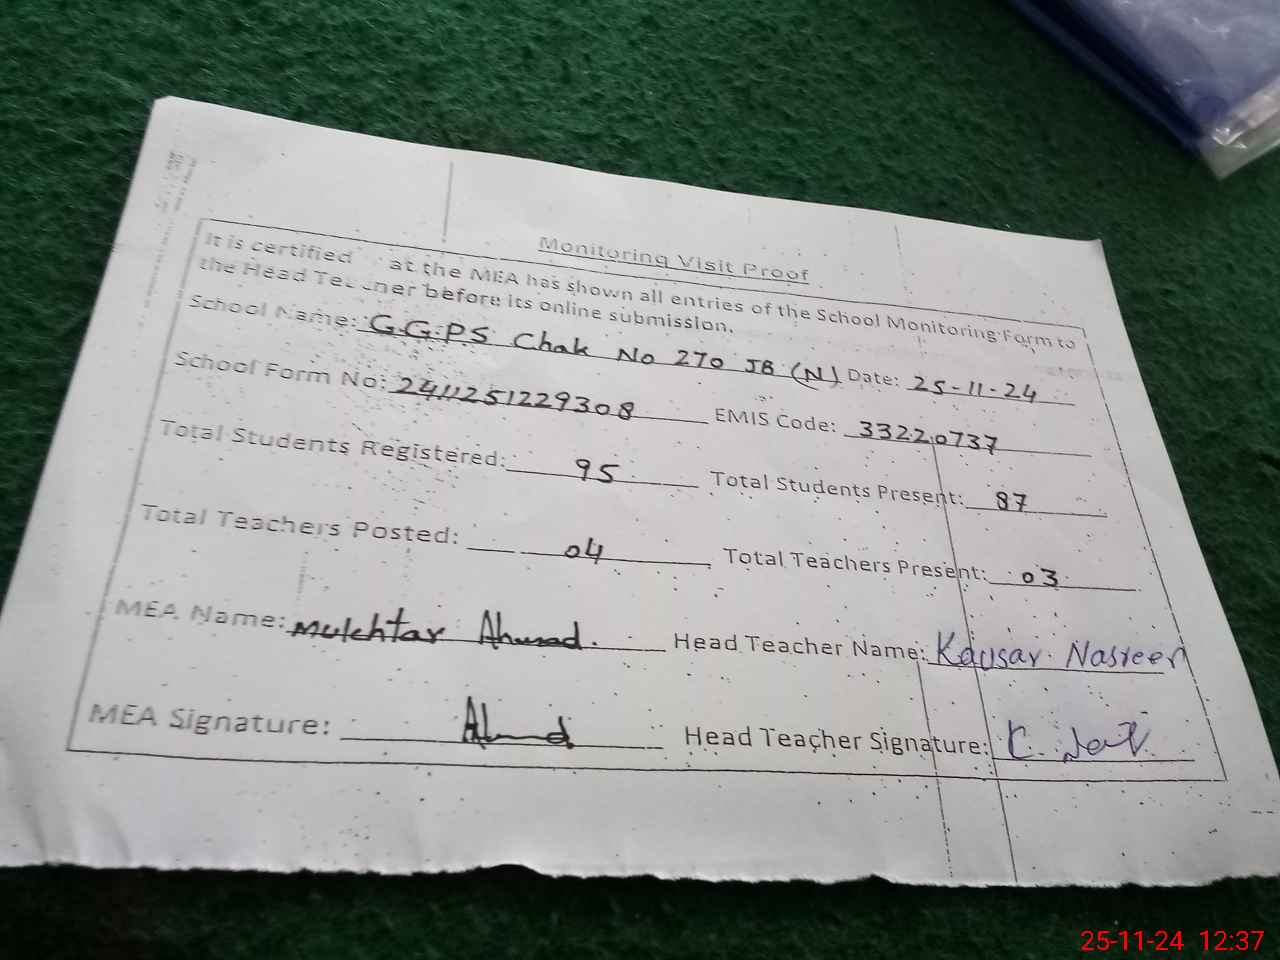 Monitoring Visit Proof
It is certified at the MEA has shown all entries of the School Monitoring Form to
the Head Teacher before its online submission.
School Name: G.G.P.S Chak No 270 JB (N) Date: 25-11-24
School Form No: 2411251229308 EMIS Code: 33220737
Total Students Registered: 95 Total Students Present: 87
Total Teachers Posted: 04 Total Teachers Present: 03
MEA Name: Mukhtar Ahmad. Head Teacher Name: Kausar Nasreen
MEA Signature: Ahmad Head Teacher Signature: K.
25-11-24 12:37